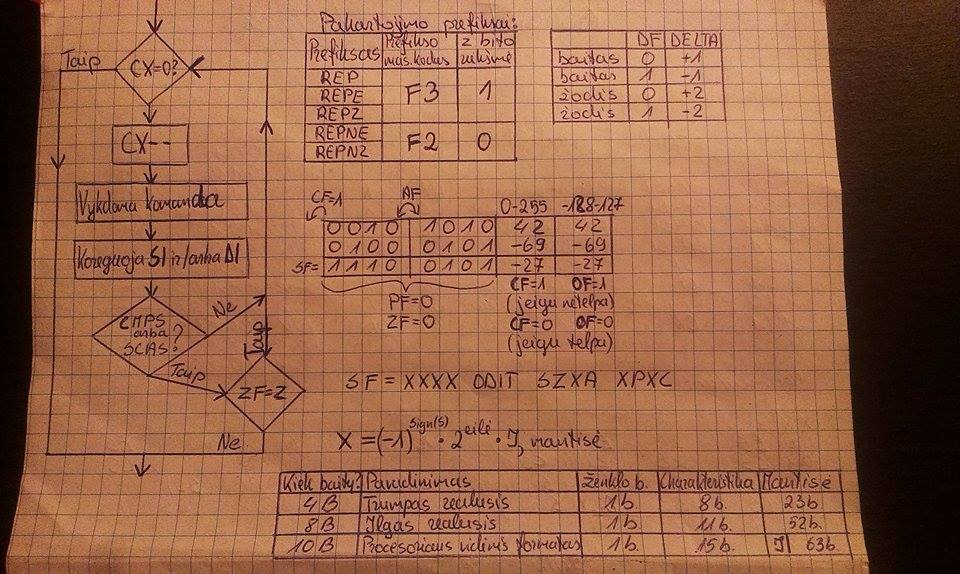 Taip
CX=0?
CX--
Vykdoma komanda
Koreguoja SI ir/arba DI
CMPS
arba
SCAS?
Ne
Taip
Taip
ZF=Z
Ne
Pakartojimo prefiksai:
Prefiksas Prefikso maš. kodas z bito reikšmė
REP
REPE F3 1
REPZ
REPNE F2 0
REPNZ
DF DELTA
baitas 0 +1
baitas 1 -1
žodis 0 +2
žodis 1 -2
CF=1 AF 0-255 -128-127
0010 1010 42 42
0100 0101 -69 -69
SF= 1110 0101 -27 -27
PF=0
ZF=0
CF=1 OF=1
(jeigu netelpa)
CF=0 OF=0
(jeigu telpa)
SF = XXXX ODIT SZXA XPXC
X = (-1)^sign(S) · 2^eilė · I, mantisė
Kiek baitų? Pavadinimas Ženklo b. Charakteristika Mantisė
4B Trumpas realusis 1b. 8b. 23b
8B Ilgas realusis 1b. 11b. 52b.
10B Procesoriaus vidinis formatas 1b. 15b. I 63b.